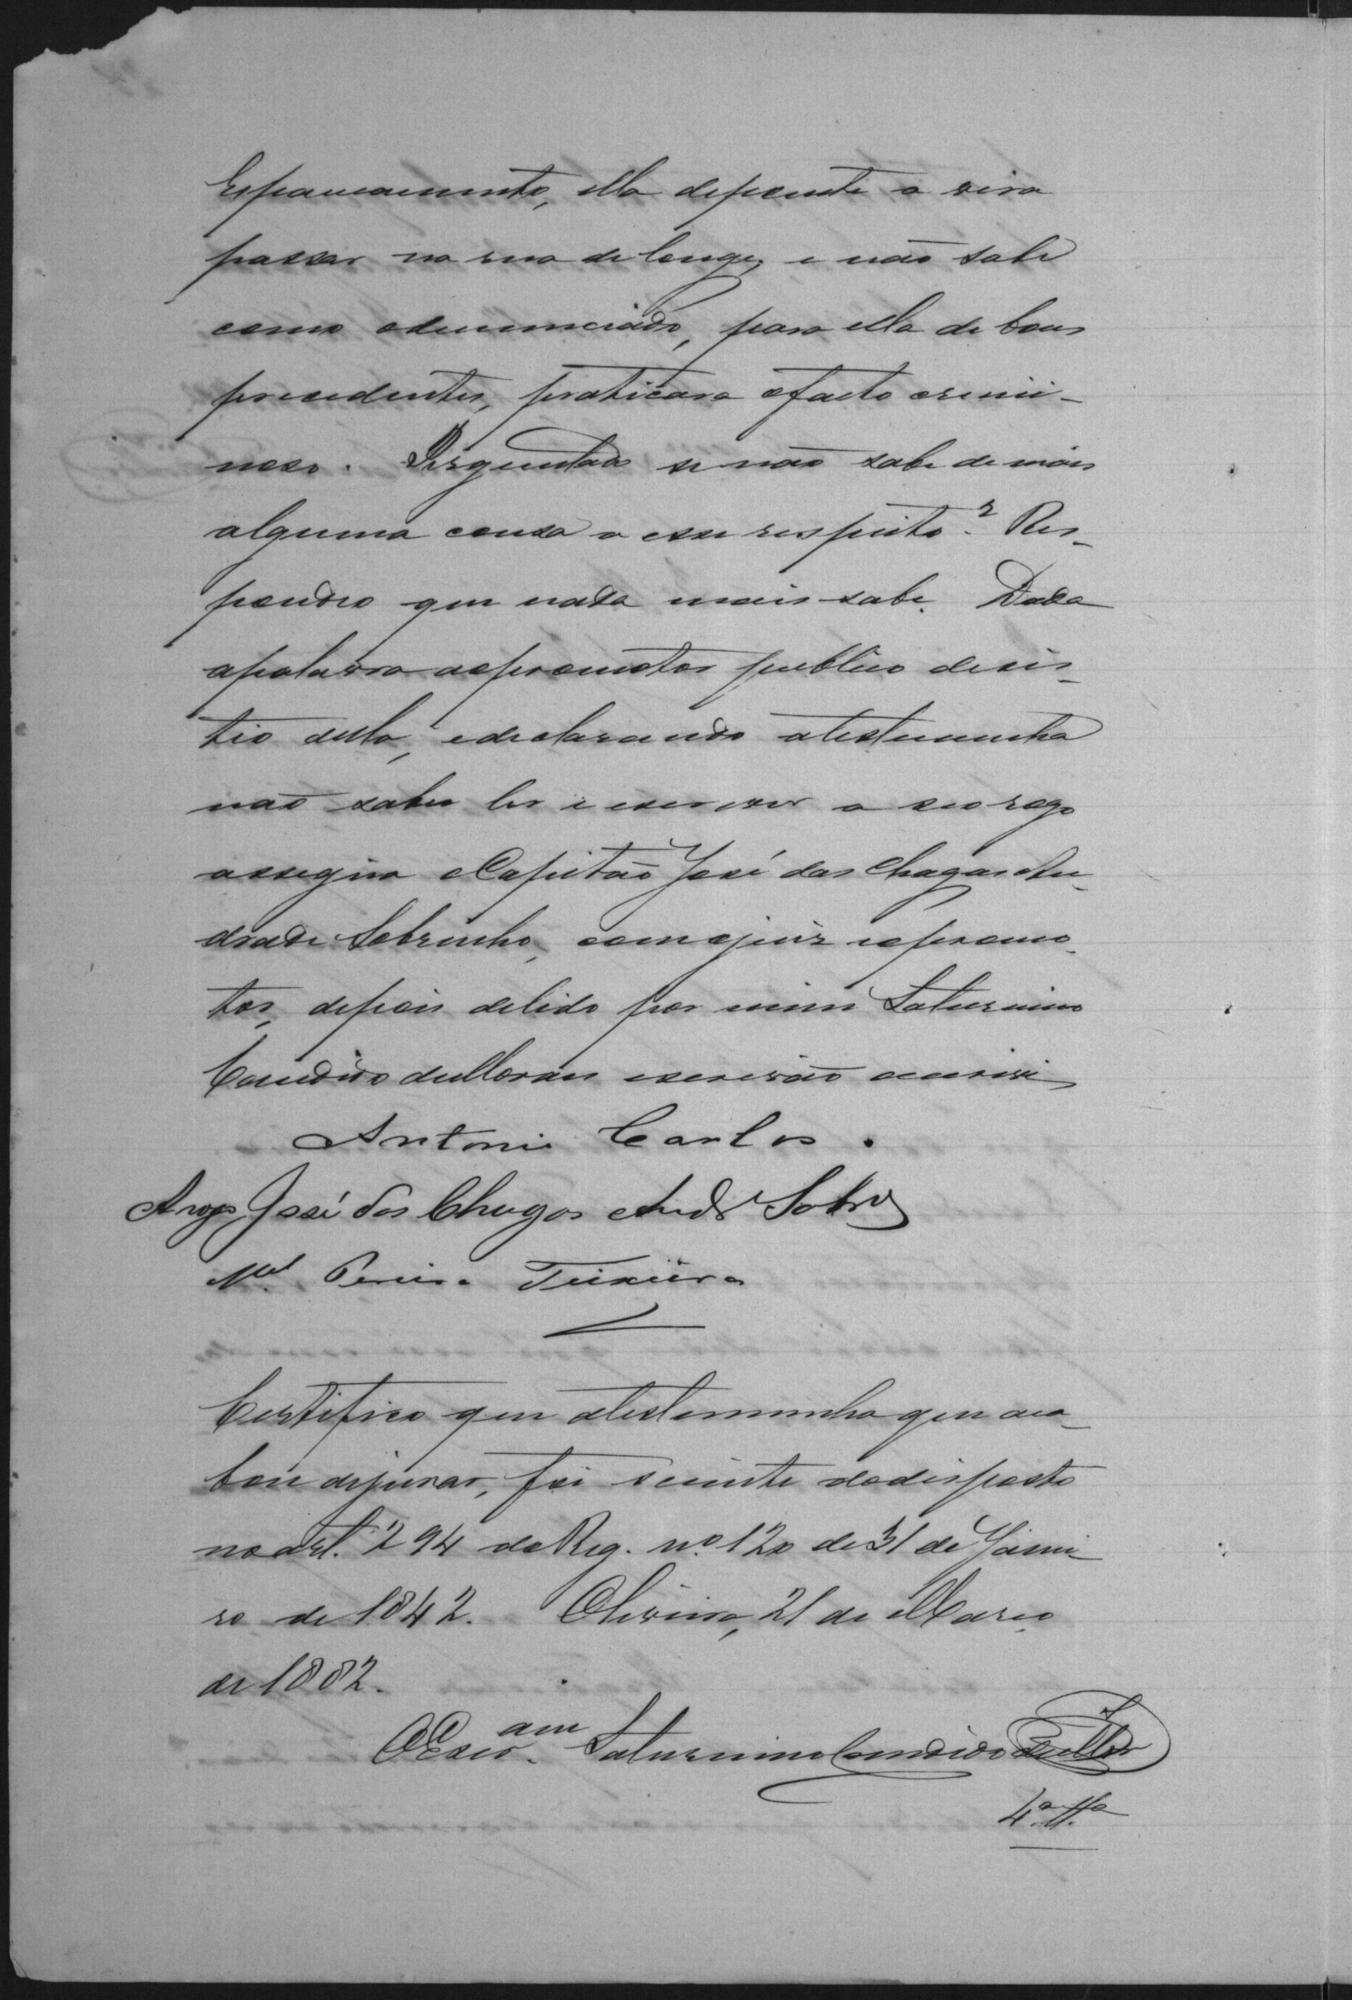 Espancamento, ella depoente o vira
passar na rua de longe, e não sabe
como o denunciado, para ella de bons
precedentes, praticara o facto crimi-
noso. Perguntado se não sabe de mais
alguma cousa a esse respeito? Res-
pondeo que nada mais sabe. Dada
apalavra ao promotor publico desis-
tio della, e declarando a testemunha
não saber ler e escrever a seo rogo
assigna o Capitão José das Chagas An-
drade Sobrinho, com o juiz e o promo-
tor, depois de lido por mim Saturnino
Candido de Moraes escrivão escrevi
Antonio Carlos.
A rogo José das Chagas Andr.e Sobr.o
M.el Pereira Teixeira
Certifico que a testemunha que aca-
bou de jurar, foi sciente do disposto
no art. 294 do Reg. nº 120 de 31 de Janei-
ro de 1842. Oliveira, 21 de Março
de 1882.
O Escr.am Saturnino Candido de Mor
4ª Tª